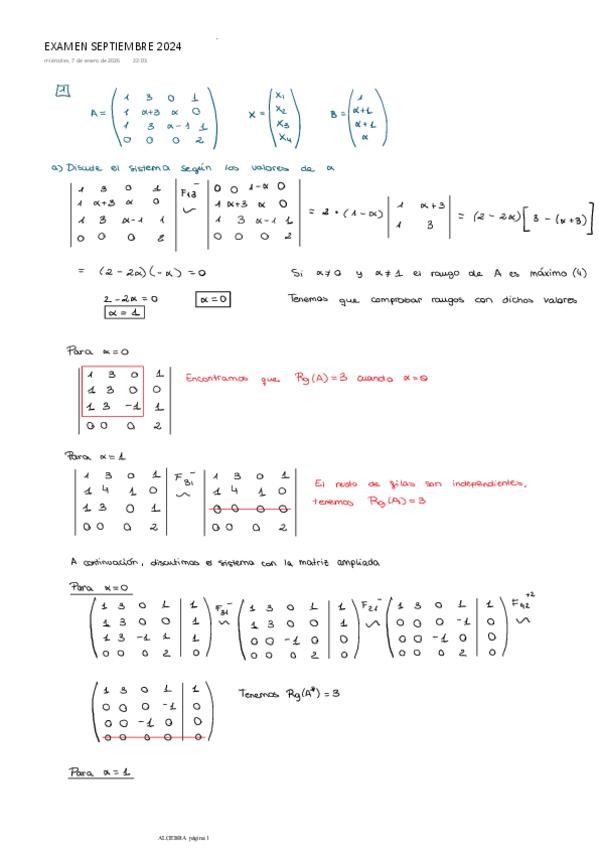 EXAMEN SEPTIEMBRE 2024
miércoles, 7 de enero de 2026 22:03
1
A = ( 1 3 0 1 ; 1 α+3 α 0 ; 1 3 α-1 1 ; 0 0 0 2 ) X = ( x1 ; x2 ; x3 ; x4 ) B = ( 1 ; α+1 ; α+1 ; α )
a) Discute el sistema según los valores de α
| 1 3 0 1 ; 1 α+3 α 0 ; 1 3 α-1 1 ; 0 0 0 2 | F13⁻ ~ | 0 0 1-α 0 ; 1 α+3 α 0 ; 1 3 α-1 1 ; 0 0 0 2 | = 2 · (1-α) | 1 α+3 ; 1 3 | = (2-2α)[3-(α+3)]
= (2-2α)(-α) = 0 Si α≠0 y α≠1 el rango de A es máximo (4)
2-2α=0 α=0 Tenemos que comprobar rangos con dichos valores
α=1
Para α=0
| 1 3 0 1 ; 1 3 0 0 ; 1 3 -1 1 ; 0 0 0 2 | Encontramos que Rg(A)=3 cuando α=0
Para α=1
| 1 3 0 1 ; 1 4 1 0 ; 1 3 0 1 ; 0 0 0 2 | F31⁻ ~ | 1 3 0 1 ; 1 4 1 0 ; 0 0 0 0 ; 0 0 0 2 | El resto de filas son independientes,
tenemos Rg(A)=3
A continuación, discutimos el sistema con la matriz ampliada
Para α=0
( 1 3 0 1 | 1 ; 1 3 0 0 | 1 ; 1 3 -1 1 | 1 ; 0 0 0 2 | 0 ) F31⁻ ~ ( 1 3 0 1 | 1 ; 1 3 0 0 | 1 ; 0 0 -1 0 | 0 ; 0 0 0 2 | 0 ) F21⁻ ~ ( 1 3 0 1 | 1 ; 0 0 0 -1 | 0 ; 0 0 -1 0 | 0 ; 0 0 0 2 | 0 ) F42⁺² ~
( 1 3 0 1 | 1 ; 0 0 0 -1 | 0 ; 0 0 -1 0 | 0 ; 0 0 0 0 | 0 ) Tenemos Rg(A*)=3
Para α=1
ALGEBRA página 1